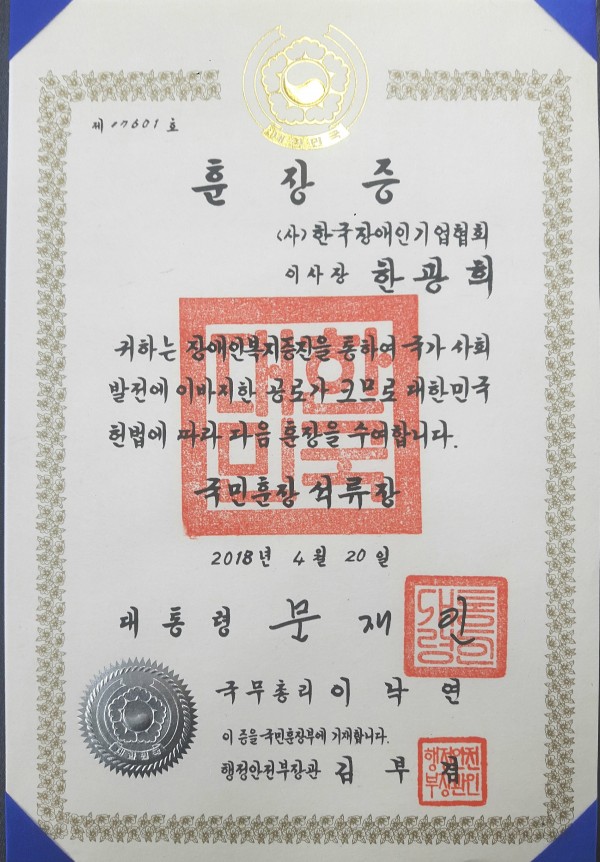 대한민국
제 07601 호
훈 장 증
(사)한국장애인기업협회
이사장 한광희
귀하는 장애인복지증진을 통하여 국가 사회
발전에 이바지한 공로가 크므로 대한민국
헌법에 따라 다음 훈장을 수여합니다.
대한
민국
국민훈장 석류장
2018년 4월 20일
대통령 문재인
대통령의인
국무총리 이낙연
대한민국
이 증을 국민훈장부에 기재합니다.
행정안전부장관 김부겸
행정안전
부장관인